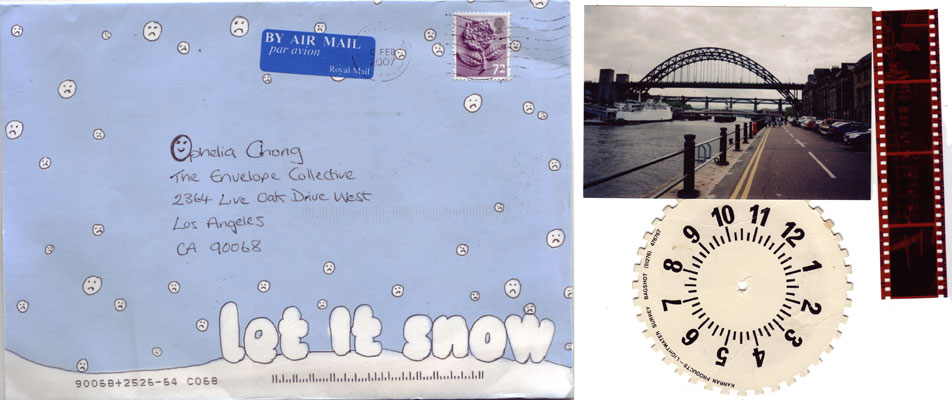 BY AIR MAIL
par avion
Royal Mail
FEB
2007
72
Ophelia Chong
The Envelope Collective
2364 Live Oak Drive West
Los Angeles
CA 90068
let it snow
90068+2526-64 C068
9 10 11 12 1 2 3 4 5 6 7 8
KARRAN PRODUCTS — LIGHTWATER SURREY BAGSHOT (0276)